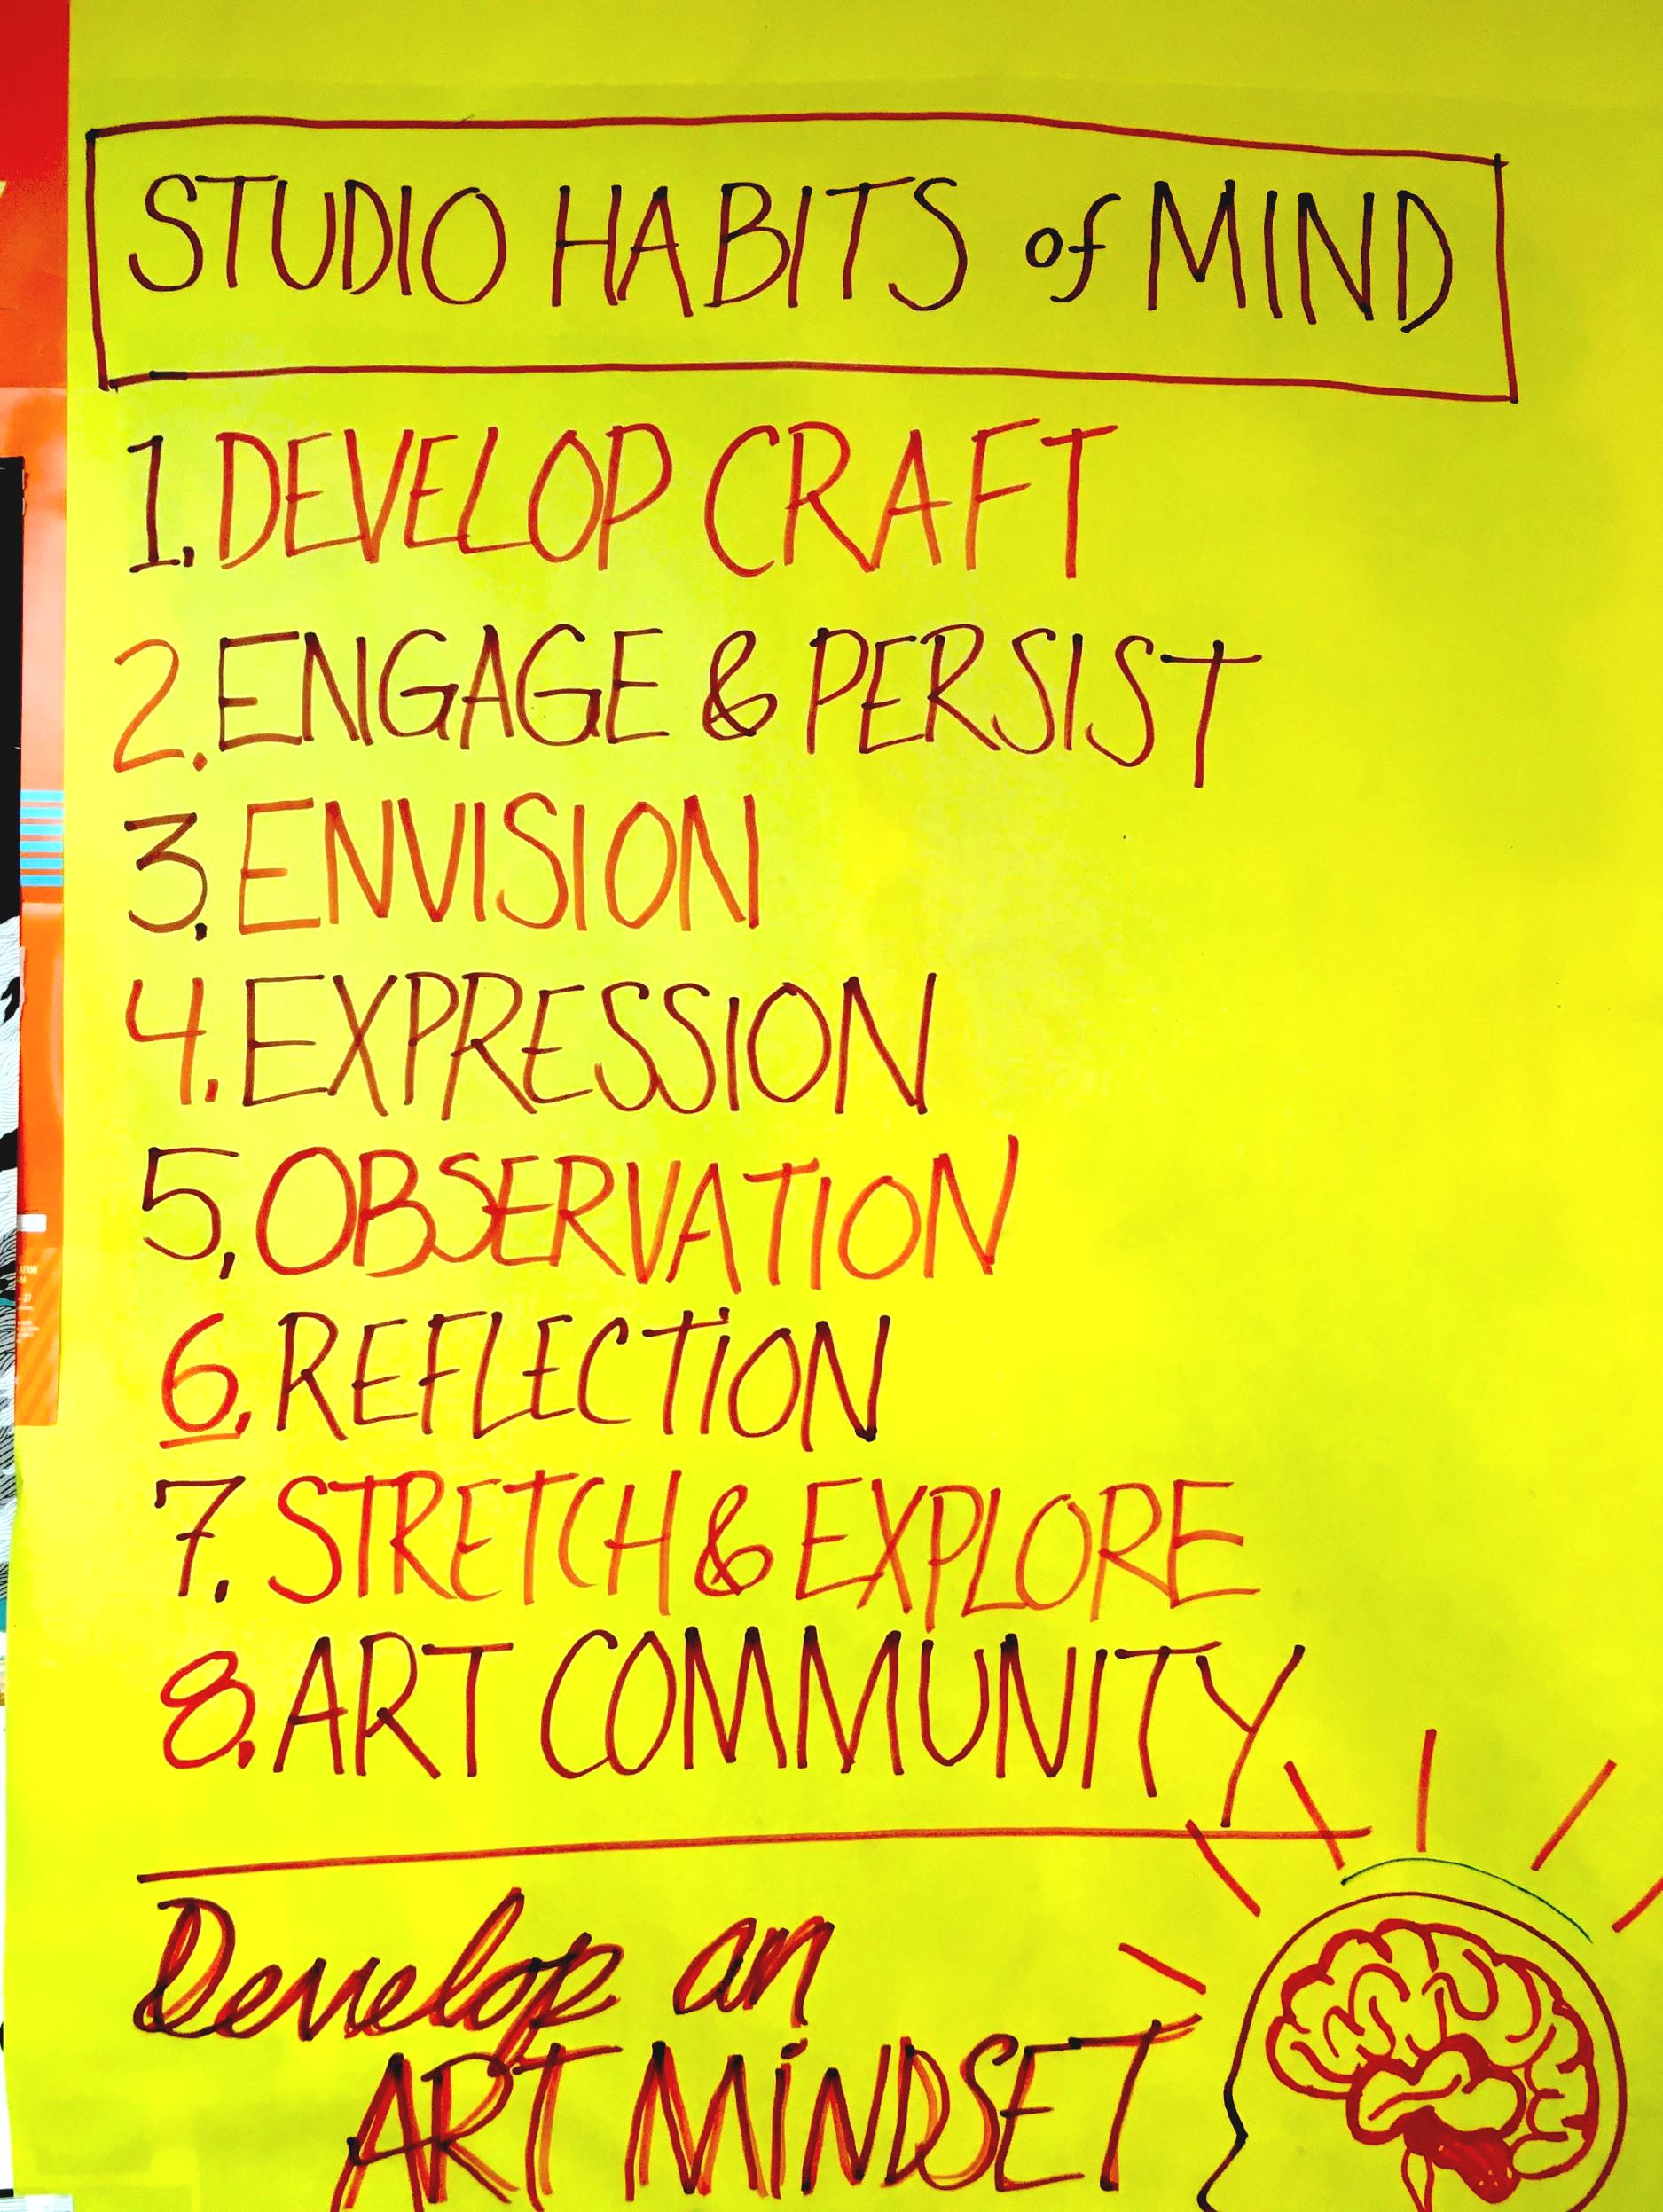 STUDIO HABITS of MIND
1. DEVELOP CRAFT
2. ENGAGE & PERSIST
3. ENVISION
4. EXPRESSION
5. OBSERVATION
6. REFLECTION
7. STRETCH & EXPLORE
8. ART COMMUNITY
Develop an
ART MINDSET